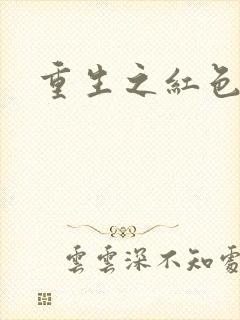 重生之紅色
雲雲深不知處